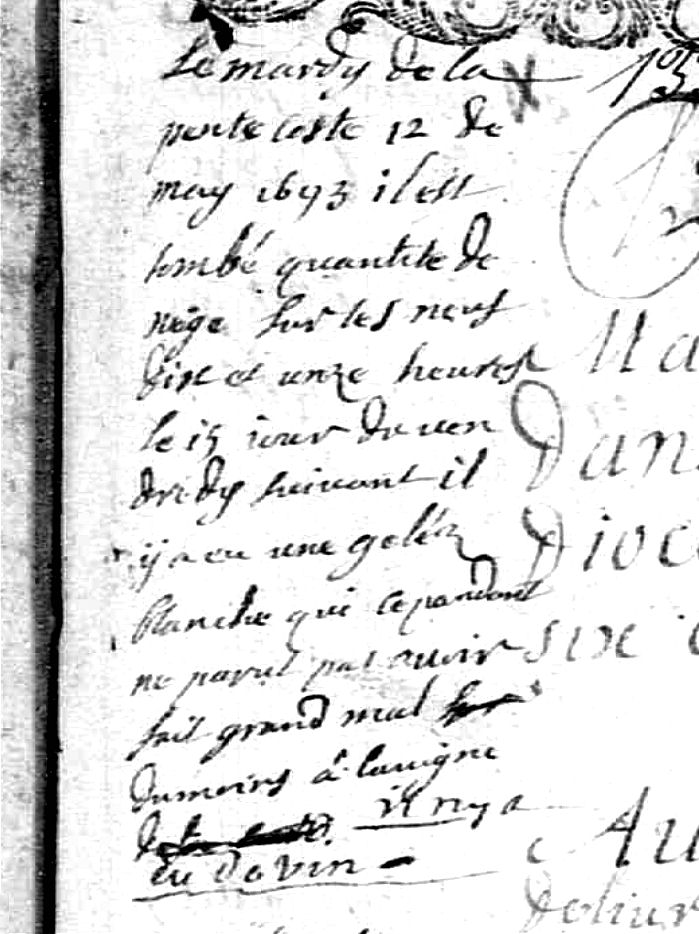 Le mardy de la
pentecoste 12 de
may 1693 il est
tombé quantité de
nège sur les neuf
dix et unze heures
le 15 iour du ven
dredy suivant il
y a eu une gelée
blanche qui cependant
ne parut pas avoir
fait grand mal
du moins a la vigne
il ny a
eu de vin
13
Ma
Dan
Dioc
SIX
Au
Deliur